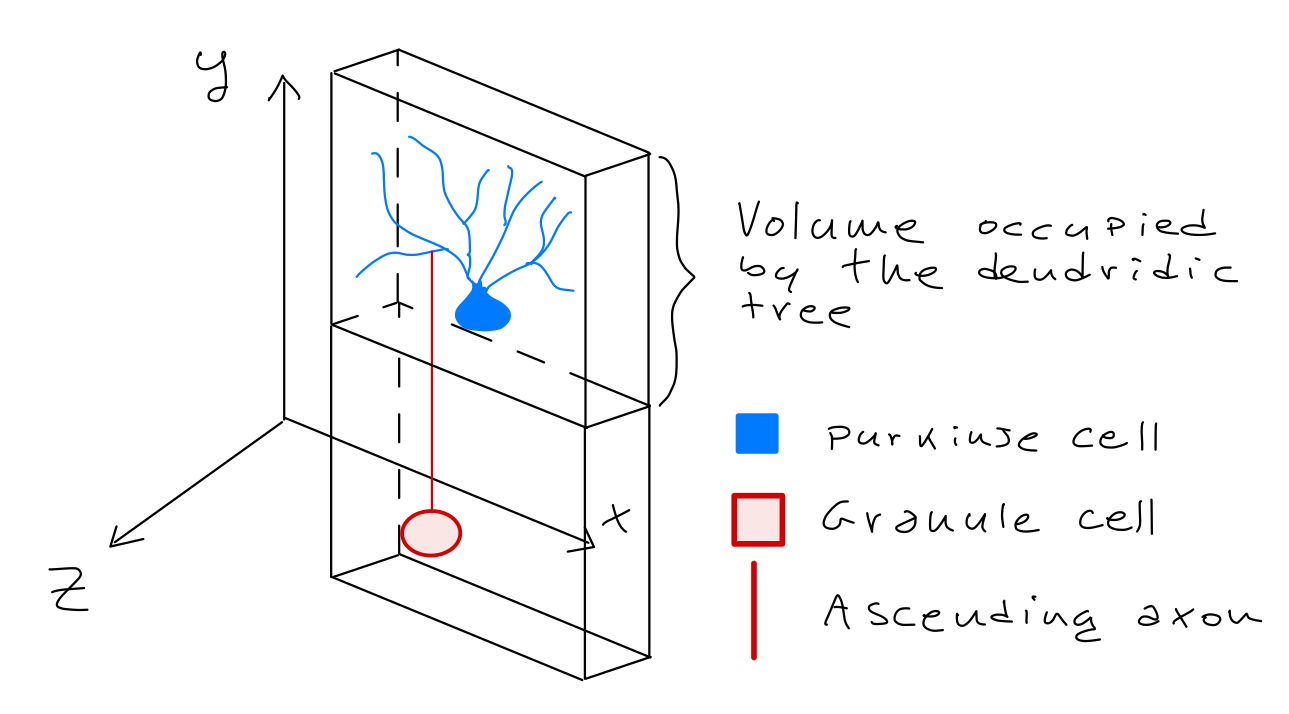 y
Volume occupied
by the dendridic
tree
Purkinje cell
x
Granule cell
z
Ascending axon